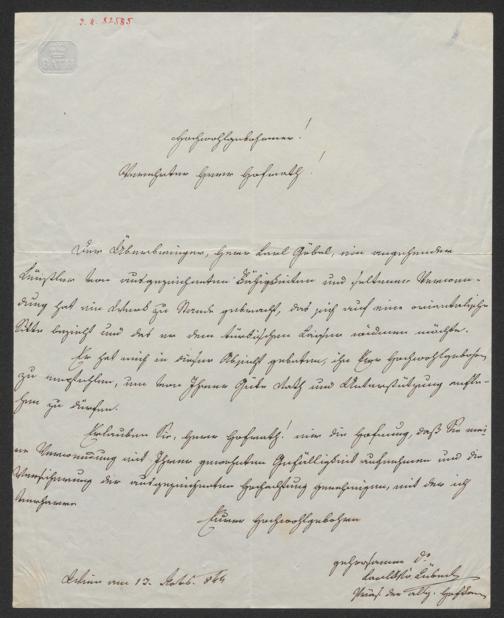 Hochwohlgebohrner!
Verehrter Herr Hofrath!
Der Überbringer, Herr Carl Göbel, ein angehender
Künstler von ausgezeichneten Fähigkeiten und seltener Verwen-
dung hat ein Werk zu Stande gebracht, das sich auf eine orientalische
Sitte bezieht und das er dem türkischen Kaiser widmen möchte.
Er hat mich in dieser Absicht gebeten, ihn Euer Hochwohlgebohren
zu empfehlen, um von Ihrer Güte Rath und Unterstützung
zu dürfen.
Erlauben Sie, Herr Hofrath! mir die Hoffnung, daß Sie mei-
ne Verwendung mit Ihrer gewohnten Gefälligkeit aufnehmen und die
Versicherung der ausgezeichneten Hochachtung genehmigen, mit der ich
verharre
Euer Hochwohlgebohren
gehorsamer
Wien am 13.